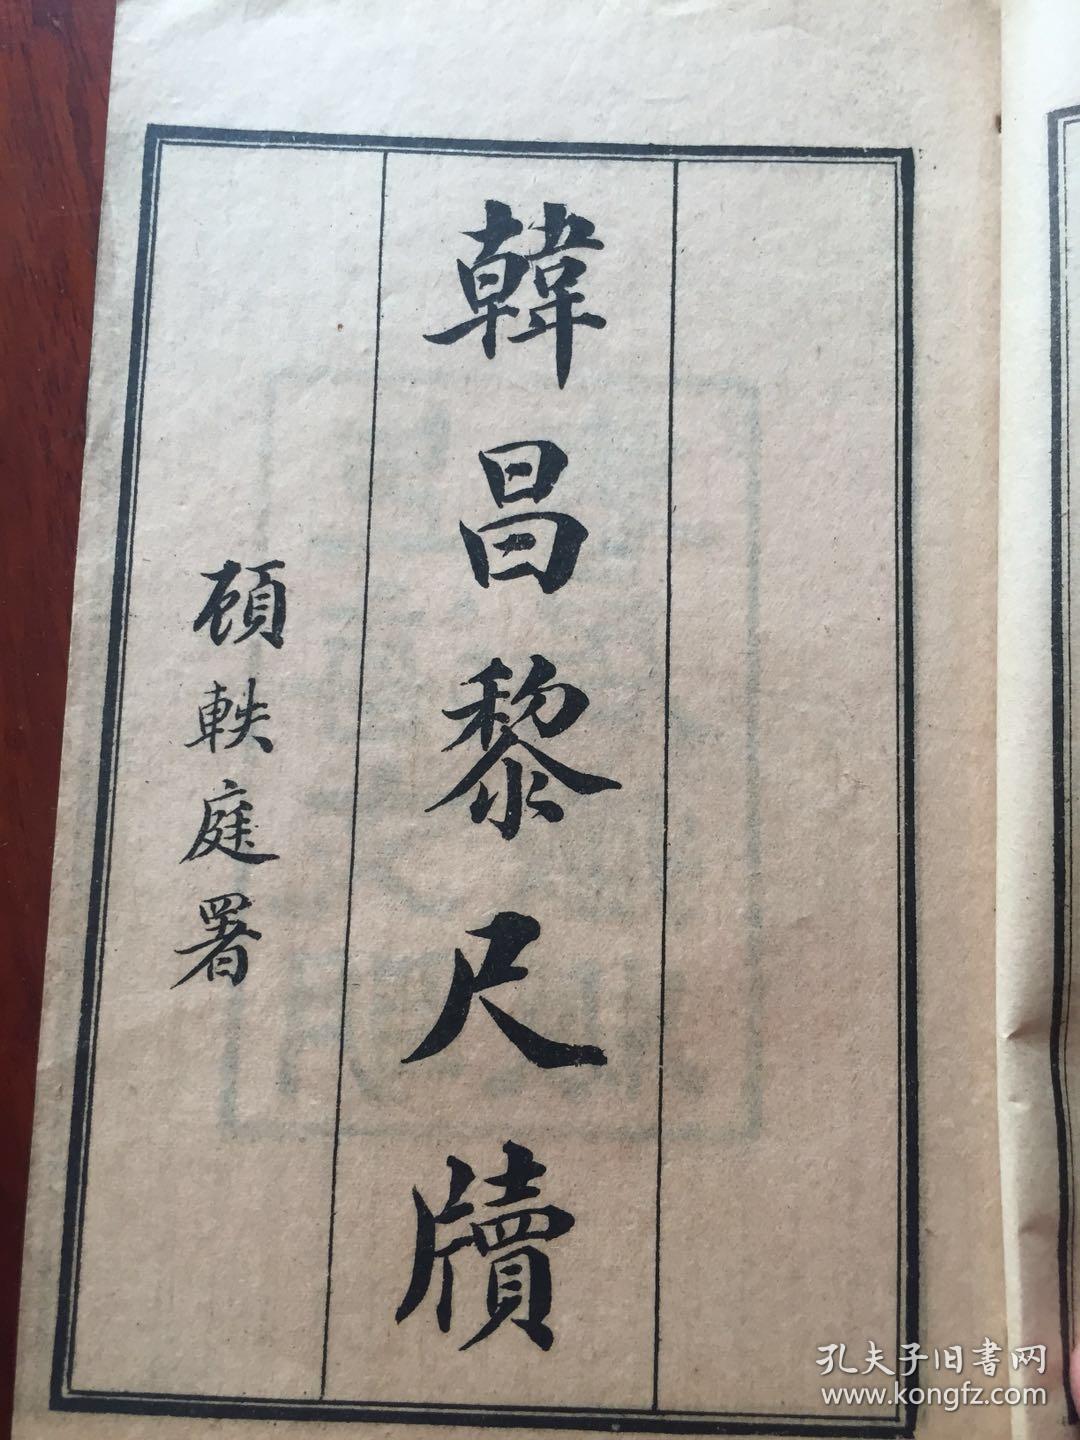 韓昌黎尺牘
顧軼庭署
孔夫子旧書网
www.kongfz.com